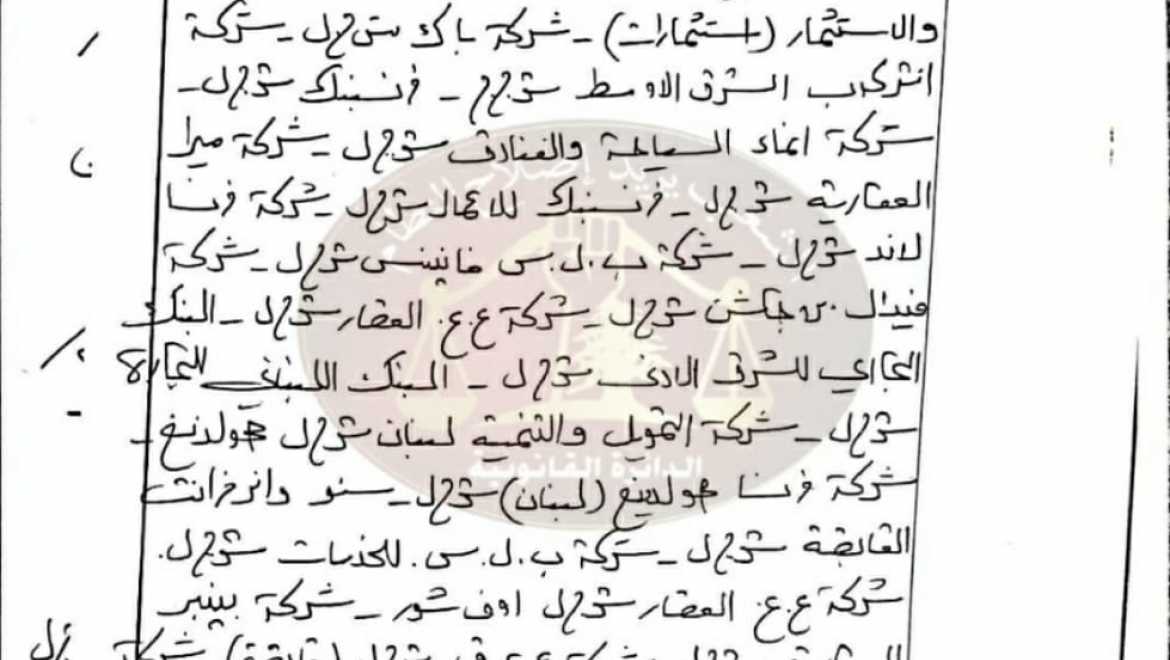 والاستثمار (استثمارات) - شركة باك ش م ل - شركة
الشرق الاوسط ش م م - فرنسبنك ش م ل -
شركة انماء السياحة والفنادق ش م ل - شركة ميرا
العقارية ش م ل - فرنسبنك للاعمال ش م ل - شركة فرنسا
لاند ش م ل - شركة ب.ل.س فايننس ش م ل - شركة
ش م ل - شركة ع.ع. العقار ش م ل - البنك
التجاري للشرق الادنى ش م ل - البنك اللبناني للتجارة
ش م ل - شركة التمويل والتنمية لبنان ش م ل هولدينغ -
شركة فرنسا هولدينغ (لبنان) ش م ل -
القابضة ش م ل - شركة ب.ل.س. للخدمات ش م ل.
شركة ع.ع. العقار ش م ل اوف شور - شركة
الشعب يريد إصلاح النظام
الدائرة القانونية